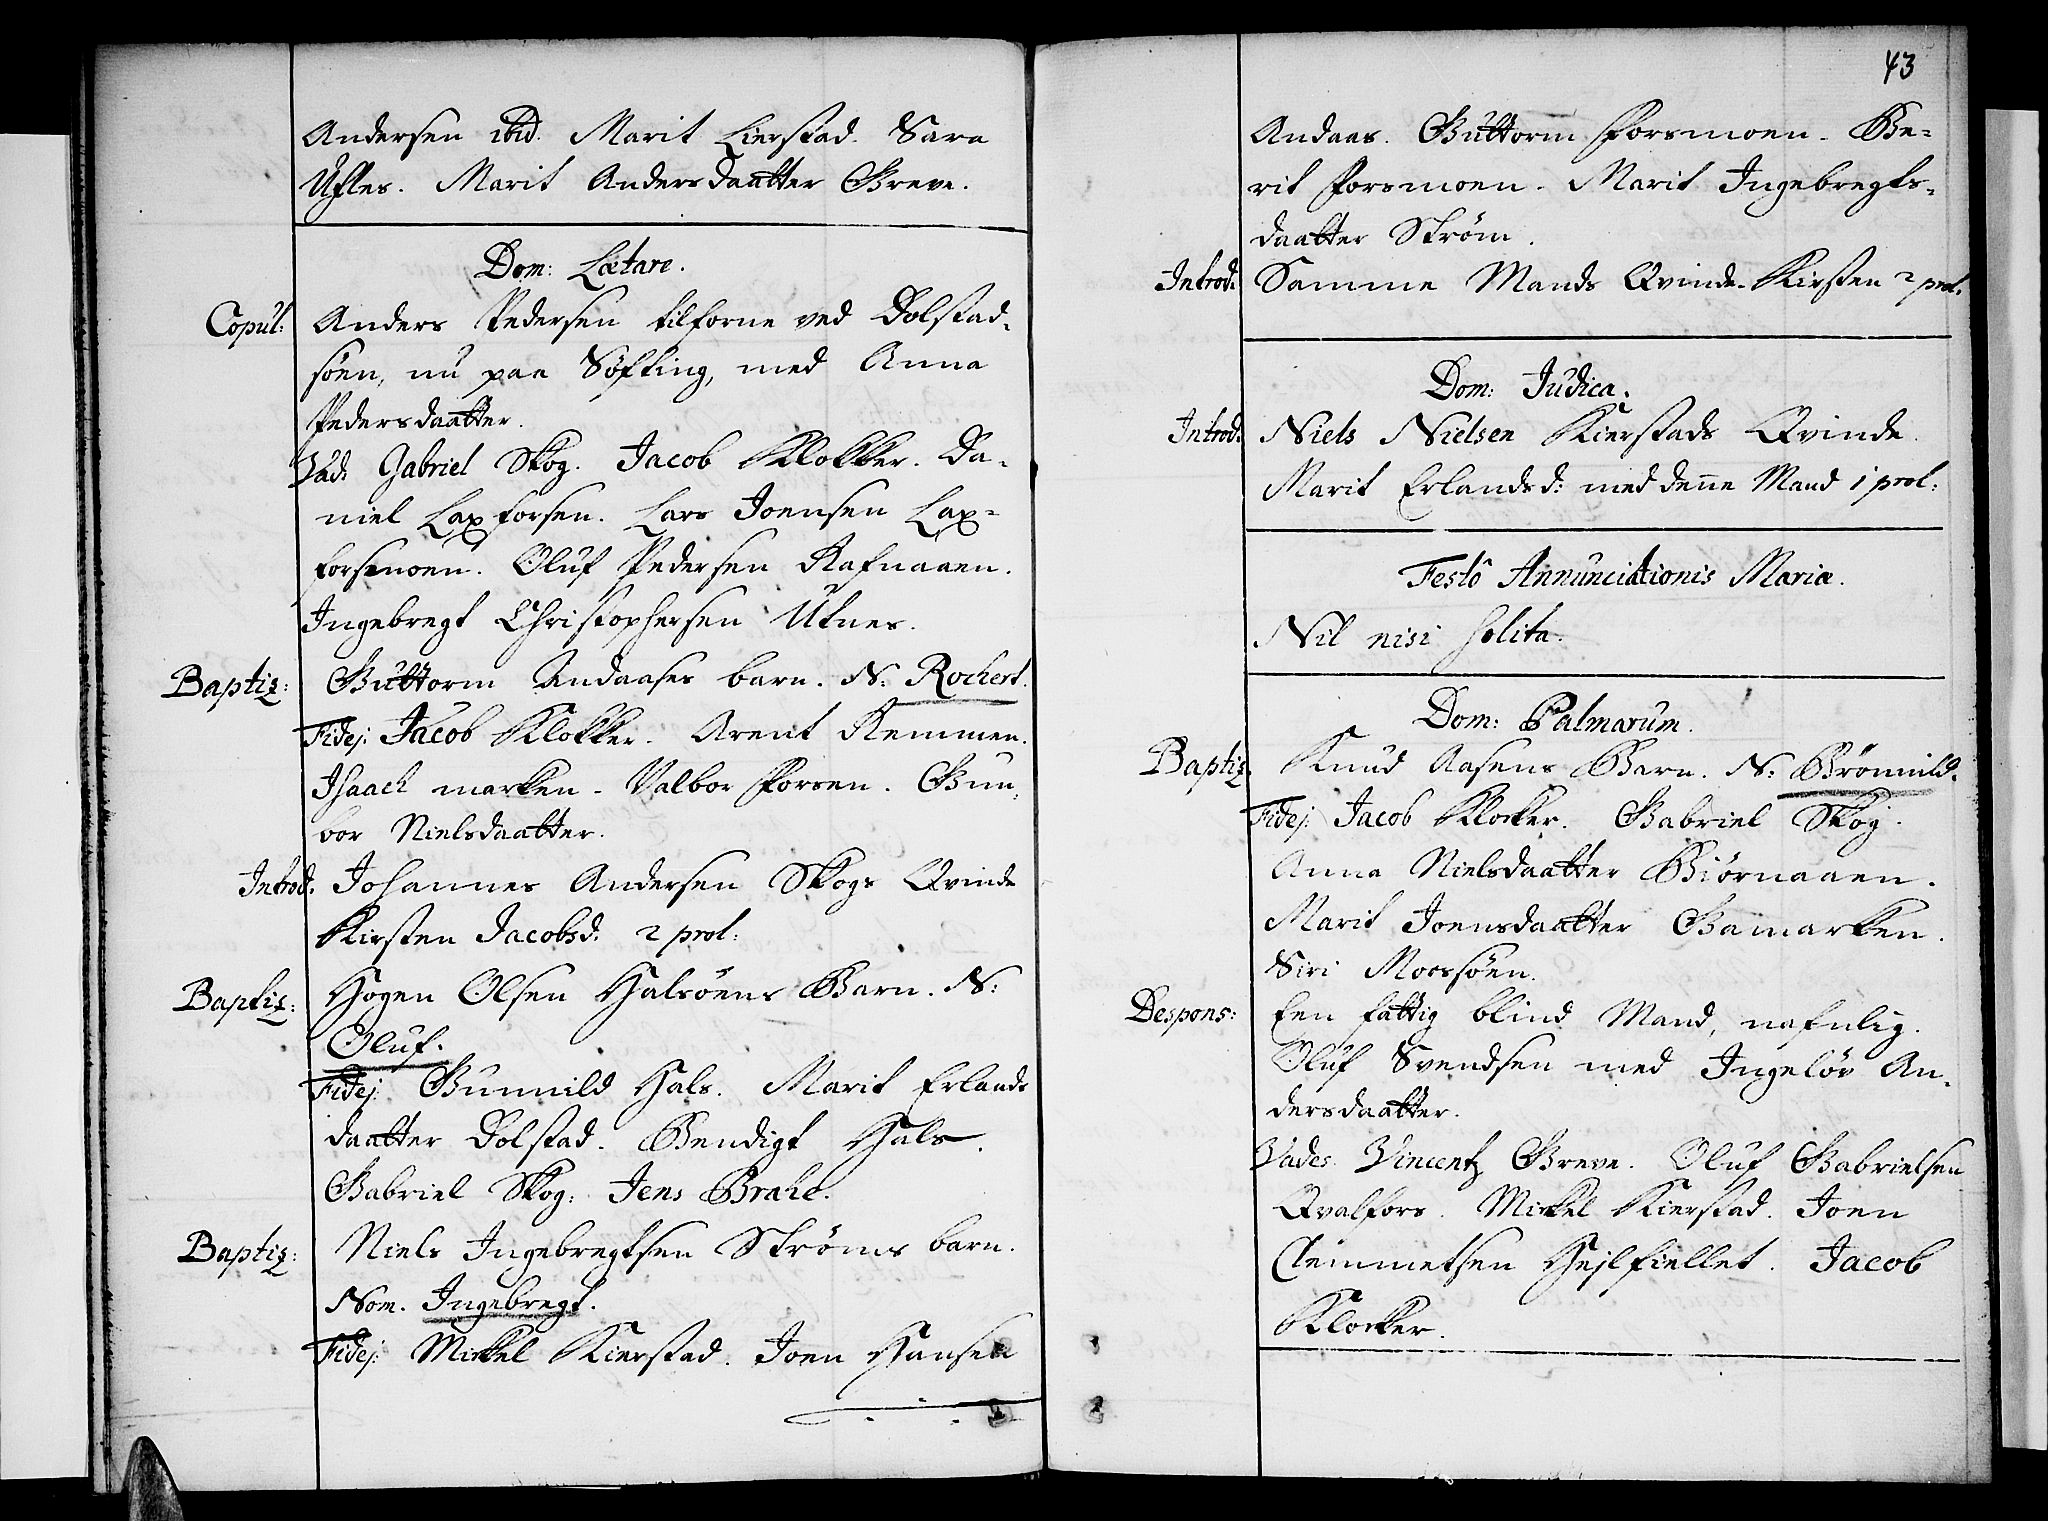 Andersen ibid. Marit Kierstad. Sara
Ufles. Marit Andersdaatter Greve.
Dom: Lætare.
Copul: Anders Pedersen tilforne ved Dolstad-
søen, nu paa Søfting, med Anna
Pedersdaatter.
Vad: Gabriel Skog. Jacob Klokker. Da-
niel Laxforsen. Lars Joensen Lax-
forsmoen. Oluf Pedersen Rafnaaen.
Ingebregt Christophersen Utnes.
Baptiz: Guttorm Andaases barn. N: Rochert.
Fidej: Jacob Klokker. Arent Remmen.
Isaach marken. Valbor Forsen. Gun-
bor Nielsdaatter.
Introd: Johannes Andersen Skogs Qvinde
Kirsten Jacobsd: 2 prol:
Baptiz: Hogen Olsen Halsøens Barn. N:
Oluf.
Fidej: Gunnild Hals. Marit Erlands
daatter Dolstad. Bendigt Hals.
Gabriel Skog: Jens Brahe.
Baptiz: Niels Ingebregtsen Strøms barn.
Nom. Ingebregt.
Fidej: Mikkel Kierstad. Joen Hansen
43
Andaas. Guttorm Forsmoen. Be-
rit Forsmoen. Marit Ingebregts-
daatter Strøm.
Introd: Samme Mands Qvinde Kirsten 2 prol.
Dom: Judica.
Introd: Niels Nielsen Kierstads Qvinde
Marit Erlandsd: med denne Mand 1 prol:
Festô Annunciationis Mariæ.
Nil nisi solita.
Dom: Palmarum.
Baptiz. Knud Aasens Barn. N: Brønnild.
Fidej: Jacob Klocker. Gabriel Skog.
Anna Nielsdaatter Biørnaaen.
Marit Joensdaatter Gamarken.
Siri Mossøen.
Despons: Een fattig blind Mand, nafnlig.
Oluf Svendsen med Ingelør An-
dersdaatter.
Vades. Vincentz Greve. Oluf Gabrielsen
Qvalfors. Mikkel Kierstad. Joen
Clemmetsen Hejlfiellet. Jacob
Klocker.